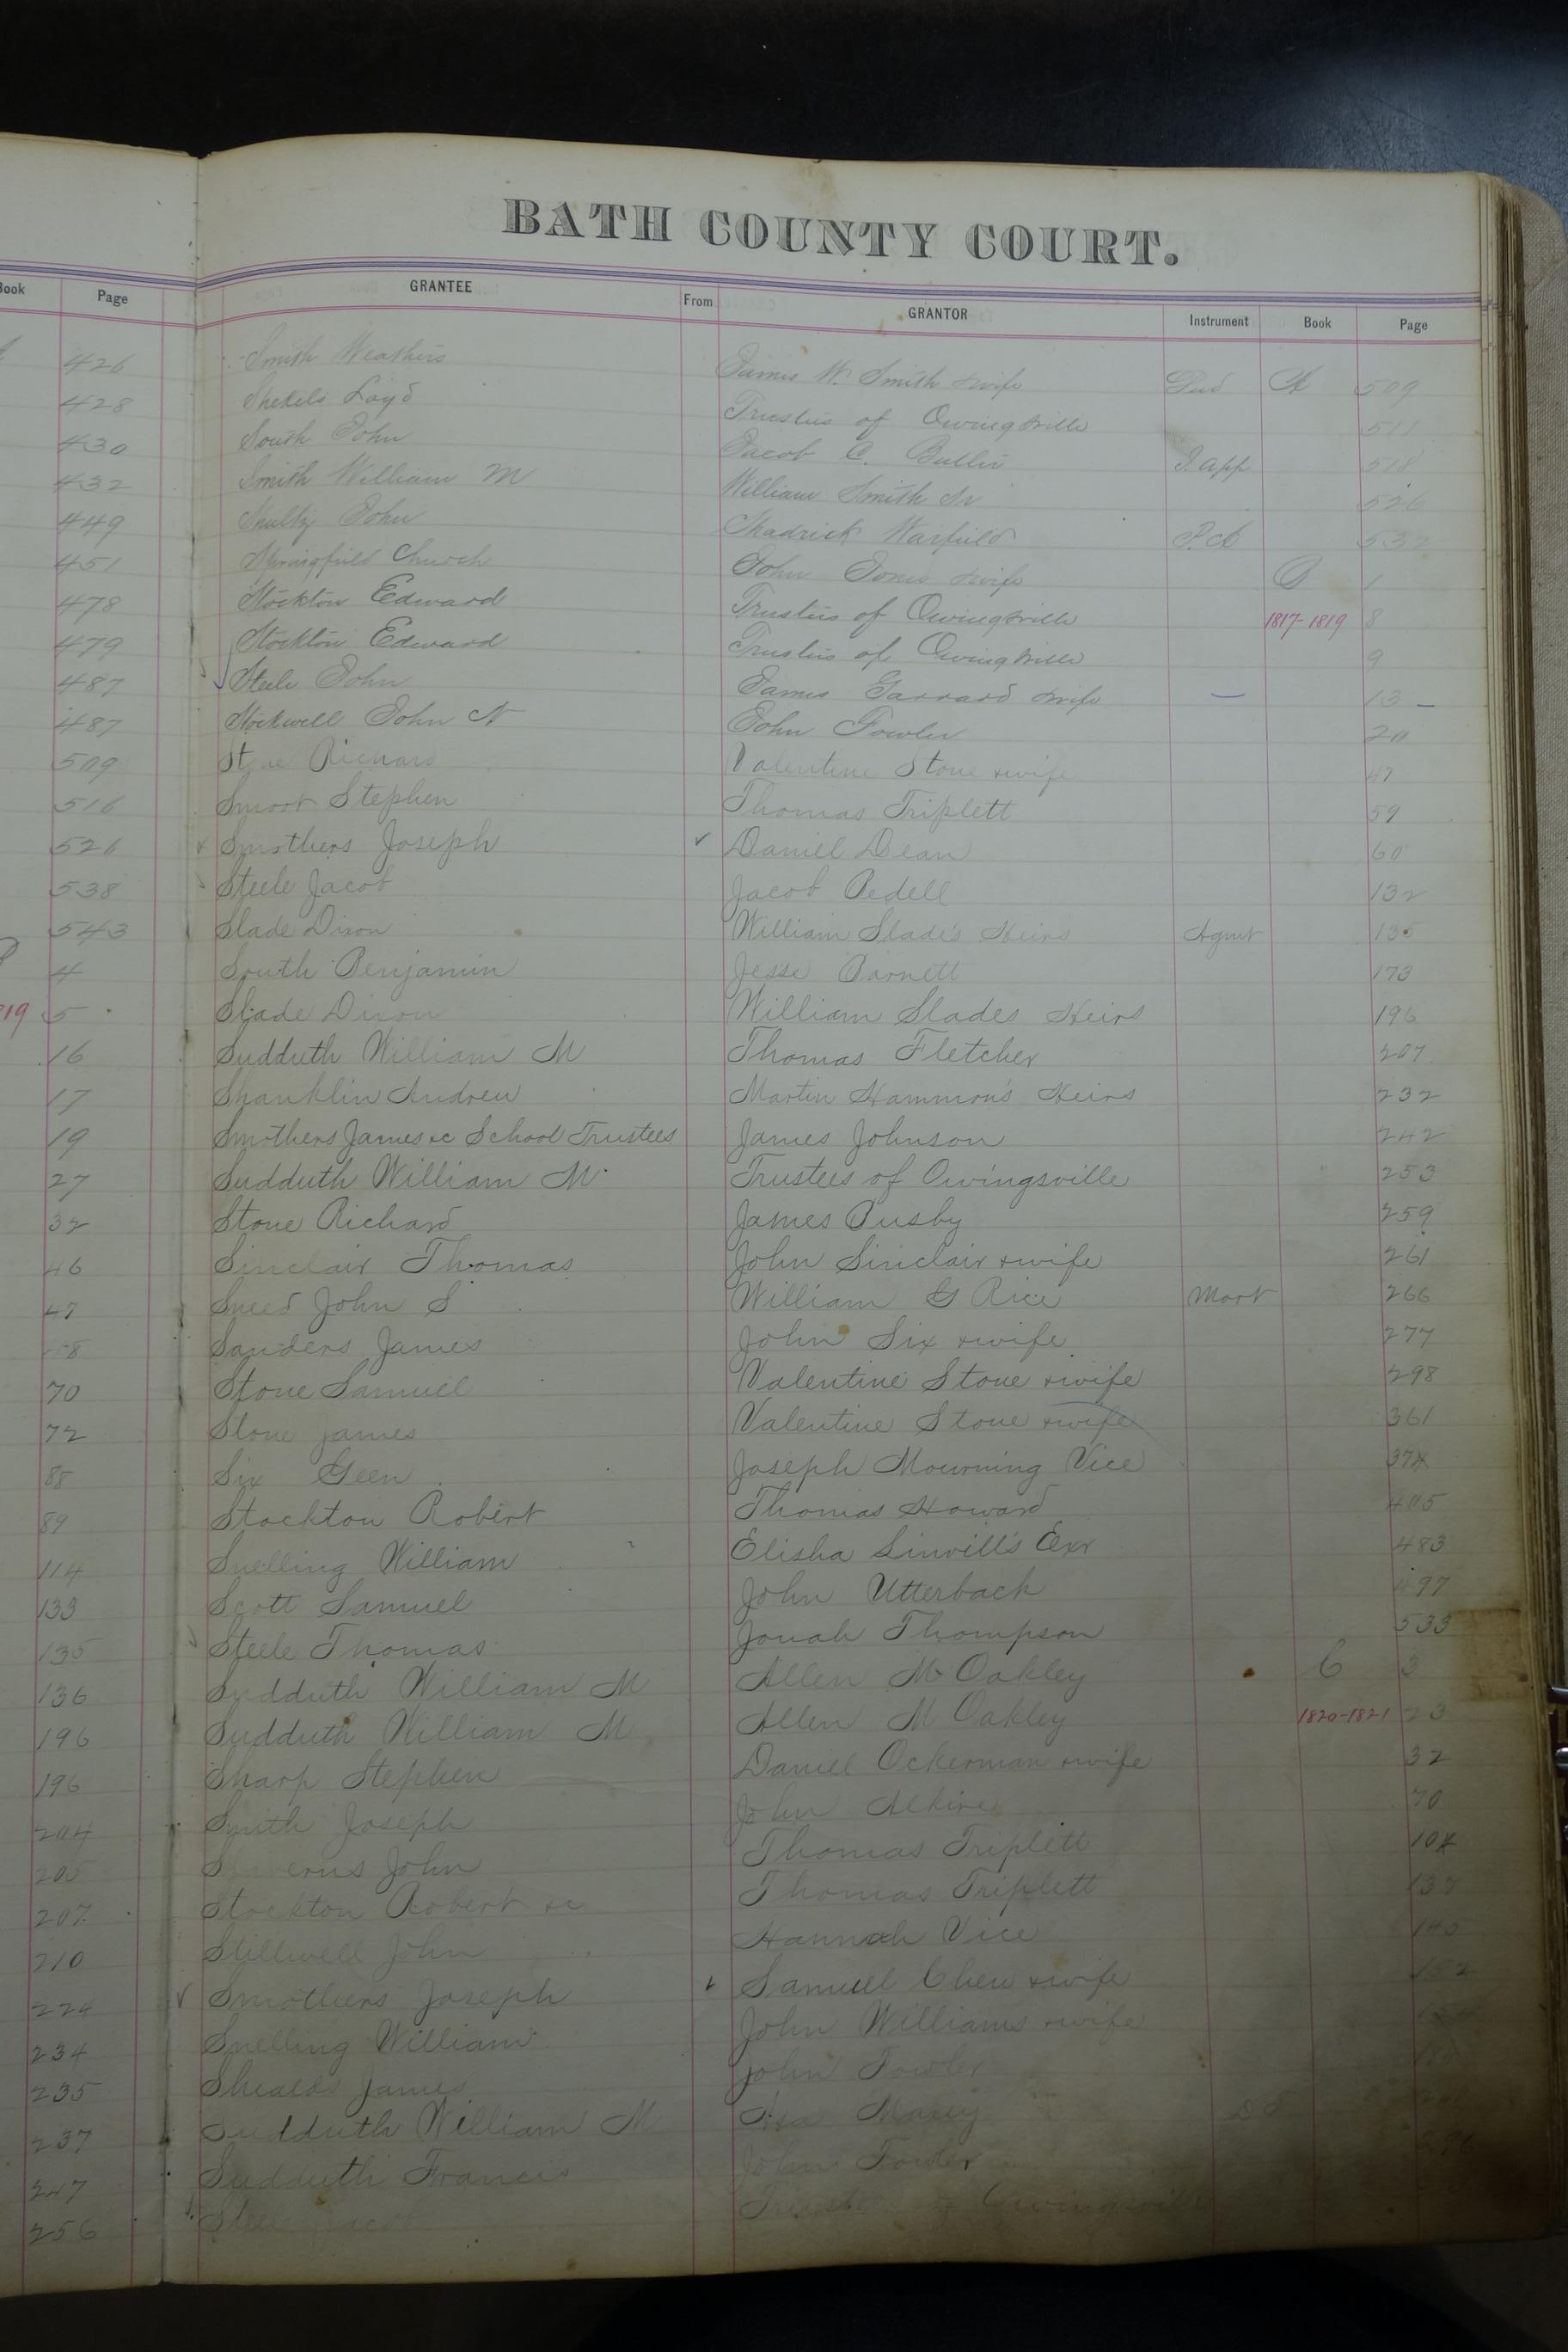 BATH COUNTY COURT.
Book Page GRANTEE From GRANTOR Instrument Book Page
426 Smith Weathers James W. Smith & wife Deed A 509
428 Shekels Loyd Trustees of Owingsville 511
430 South John Jacob C. Butler P. app 518
432 Smith William M William Smith Sr 526
449 John Shadrick Warfield 532
451 Springfield Church John Jones & wife B 1
478 Stockton Edward Trustees of Owingsville 1817-1819 8
479 Stockton Edward Trustees of Owingsville 9
487 Steele John James Garrard & wife 13
487 Stockwell John N John Fowler 20
509 Stone Richard Valentine Stone & wife 47
516 Smoot Stephen Thomas Triplett 59
526 Smothers Joseph Daniel Dean 60
538 Steele Jacob Jacob Pedell 132
543 Slade Dixon William Slade's Heirs Agmt 135
4 South Benjamin Jesse Barnett 173
19 5 Slade Dixon William Slades Heirs 196
16 Sudduth William M Thomas Fletcher 207
17 Shanklin Andrew Martin Hammon's Heirs 232
19 Smothers James &c School Trustees James Johnson 242
27 Sudduth William M Trustees of Owingsville 253
32 Stone Richard James Busby 259
46 Sinclair Thomas John Sinclair & wife 261
47 Sneed John S William G Rice Mort 266
58 Sanders James John Six & wife 277
70 Stone Samuel Valentine Stone & wife 298
72 Stone James Valentine Stone & wife 361
88 Six Geen Joseph Mourning Vice 374
89 Stockton Robert Thomas Howard 405
114 Snelling William Elisha Linvill's Exr 483
133 Scott Samuel John Utterback 497
135 Steele Thomas Jonah Thompson 533
136 Sudduth William M Allen M Oakley C 3
196 Sudduth William M Allen M Oakley 1820-1821 23
196 Sharp Stephen Daniel Ockerman & wife 32
204 Smith Joseph John Alkire 70
205 John Thomas Triplett 104
207 Stockton Robert &c Thomas Triplett 137
210 Stillwell John Hannah Vice 145
224 Smothers Joseph Samuel Chew & wife 152
234 Snelling William John Williams & wife
235 Shealds James John Fowler
237 Sudduth William M Maxey
247 Sudduth Francis John Fowler
256 Steele Jacob Trustees of Owingsville